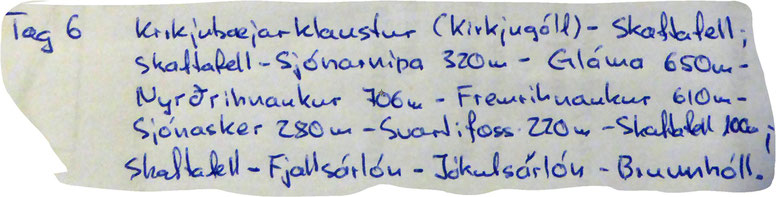 Tag 6 Kirkjubaejarklaustur (Kirkjugólf) - Skaftafell;
Skaftafell - Sjónarnipa 320m - Gláma 650m -
Nyrðrihnaukur 706m - Fremrihnaukur 610m -
Sjónasker 280m - Svartifoss 220m - Skaftafell 100m;
Skaftafell - Fjallsárlón - Jökulsárlón - Brunnhóll.